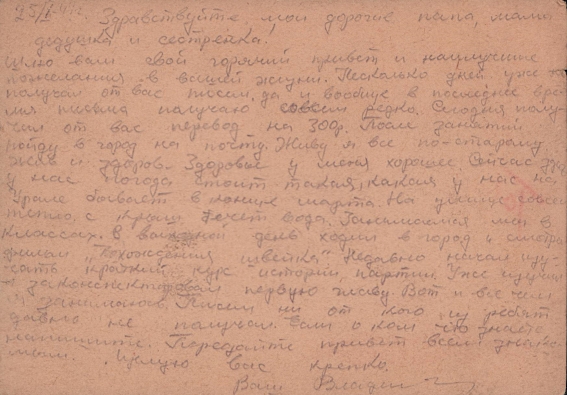 Здравствуйте, мои дорогие папа, мама
дедушка и сестренка!
Шлю вам свой горячий привет и наилучшие
пожелания в вашей жизни. Несколько дней уже не
получал от вас писем, да и вообще в последнее вре
мя письма получаю совсем редко. Сегодня полу-
чил от вас перевод на 300р. После занятий
пойду в город на почту. Живу я все по-старому
жив и здоров. Здоровье у меня хорошее. Сейчас
у нас погода стоит такая, какая у нас на
Урале бывает в конце марта. На улице совсем
тепло, с крыш течет вода. Занимаемся мы в
классах. В выходной день ходил в город и смотрел
фильм "Похождения Швейка" Недавно начал изу-
чать краткий курс истории партии. Уже изучил
и законспектировал первую главу. Вот и все чем
я занимаюсь. Писем ни от кого из ребят
давно не получал. Если о ком что знаете
напишите. Передайте привет всем знако-
мым. Целую вас крепко.
Ваш